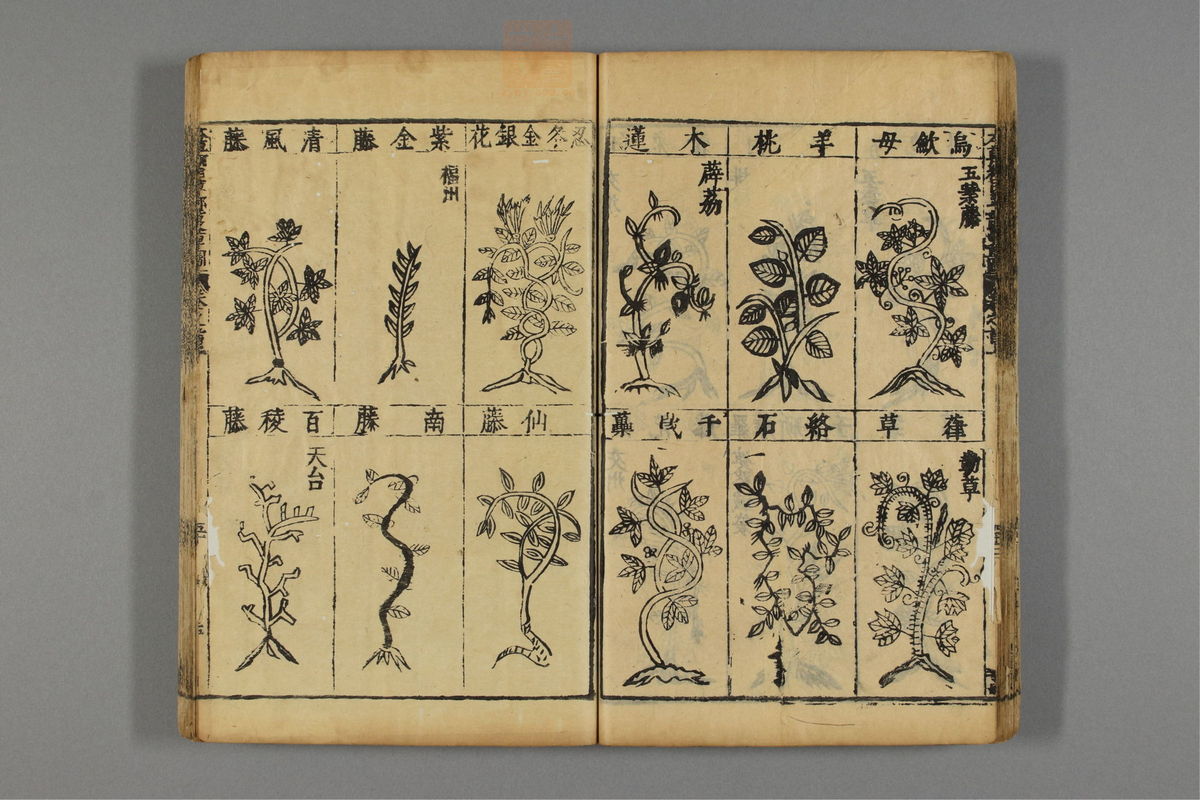 烏歛母
五葉藤
羊桃
木蓮
薜荔
葎草
勒草
絡石
千歲虆
忍冬金銀花
紫金藤
福州
清風藤
仙藤
南藤
百稜藤
天台